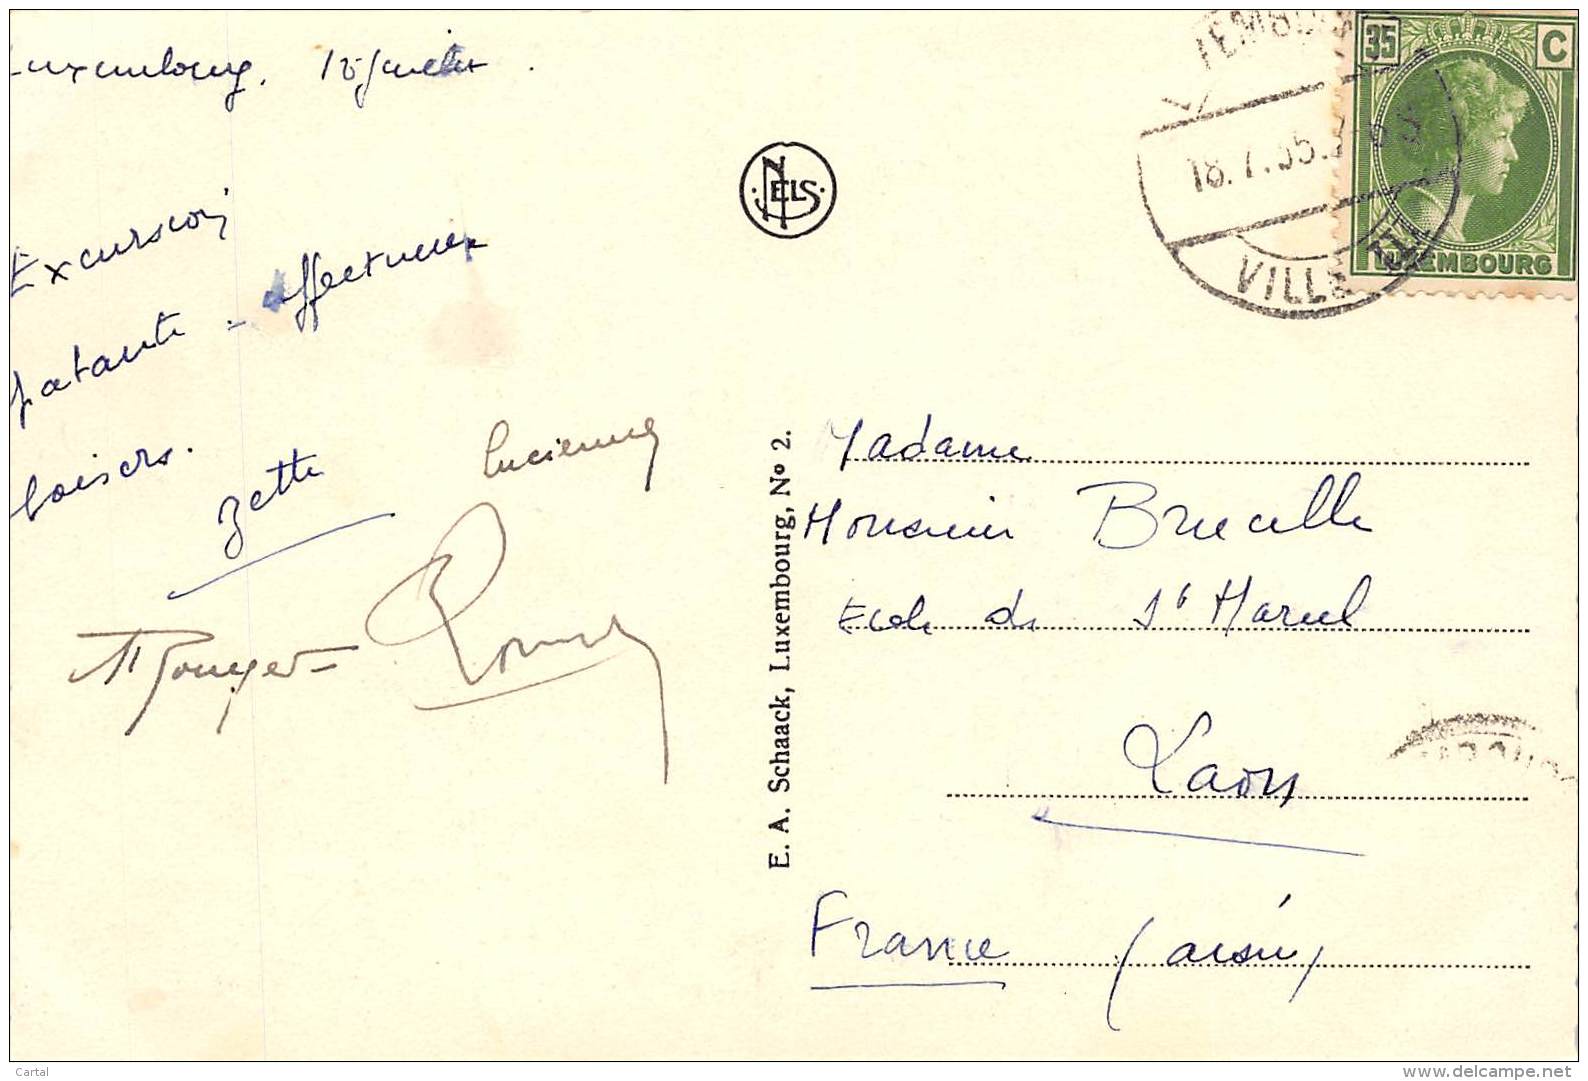 Luxembourg. 18 juillet.
Excursion
épatante - affectueux
baisers.
Zette
Lucienne
Rouyer
NELS
E. A. Schaack, Luxembourg, Nº 2.
18.7.35
VILLE
35 C
LUXEMBOURG
Madame
Monsieur Brucelle
Ecole de St Marcel
Laon
France (aisne)
Cartal
www.delcampe.net